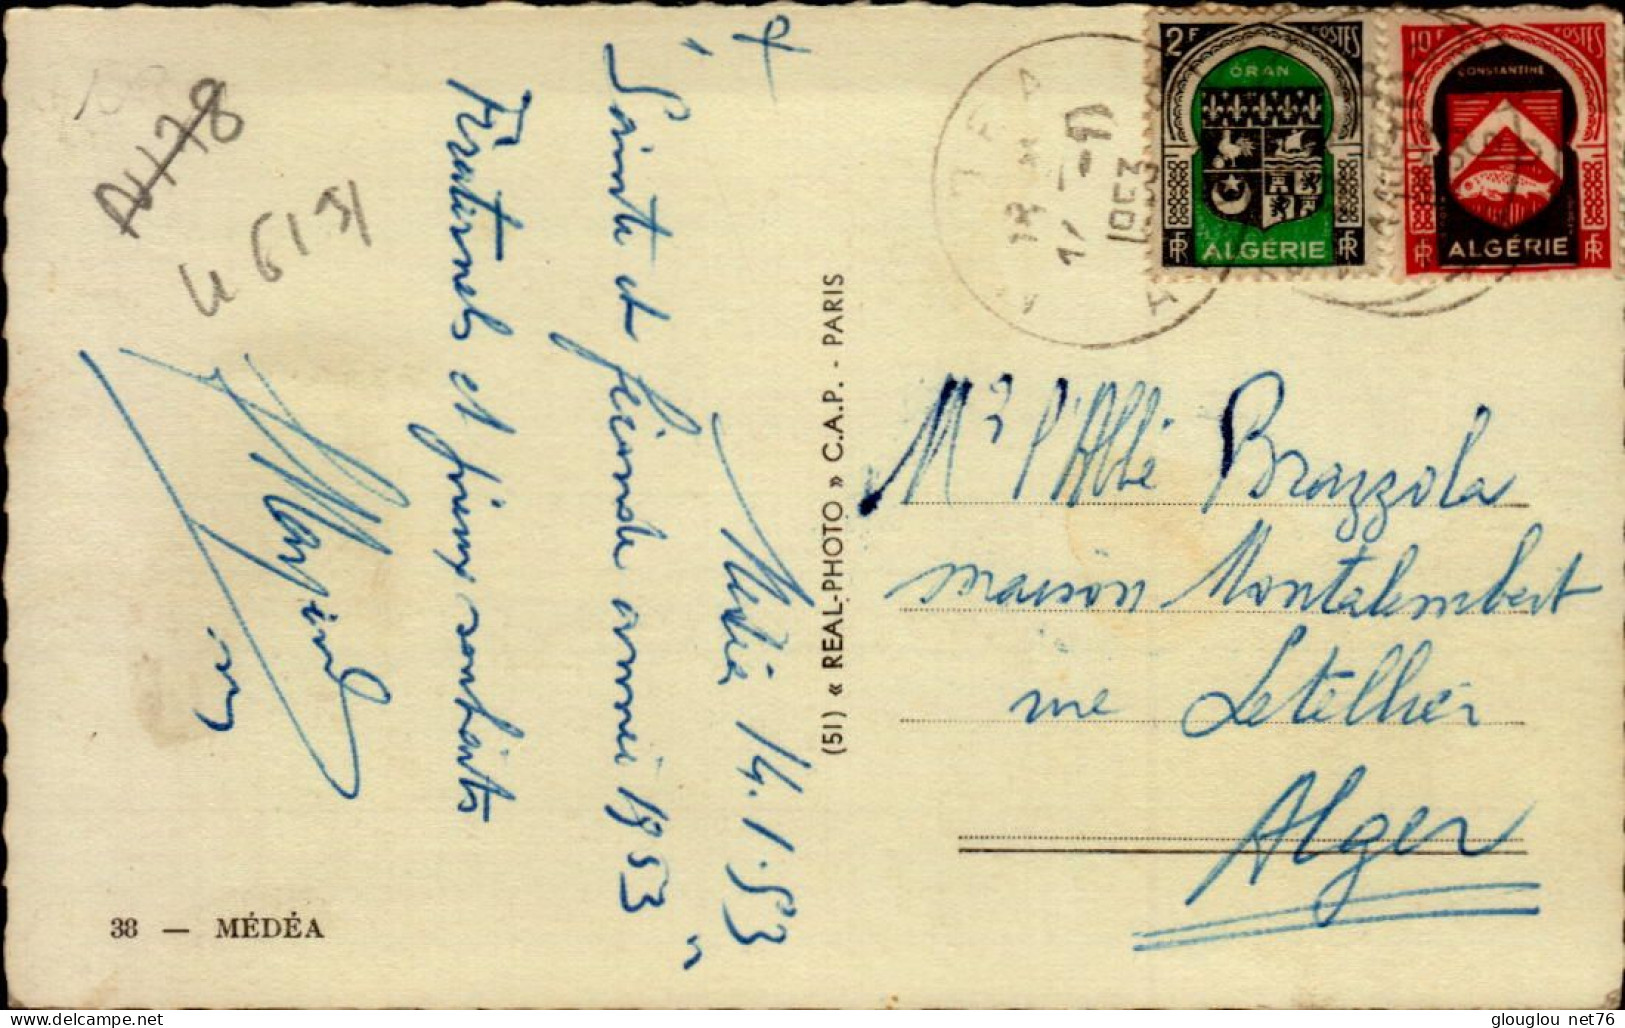 +
Médéa 14.1.53
" Sainte et féconde année 1953 "
Fraternels et joyeux souhaits
38 — MÉDÉA
(51) « REAL-PHOTO » C.A.P. - PARIS
2F POSTES
ORAN
RF ALGÉRIE RF
10F POSTES
CONSTANTINE
RF ALGÉRIE RF
1953
Mr l'Abbé Brazzola
maison Montalembert
rue Letellier
Alger
glouglou net76